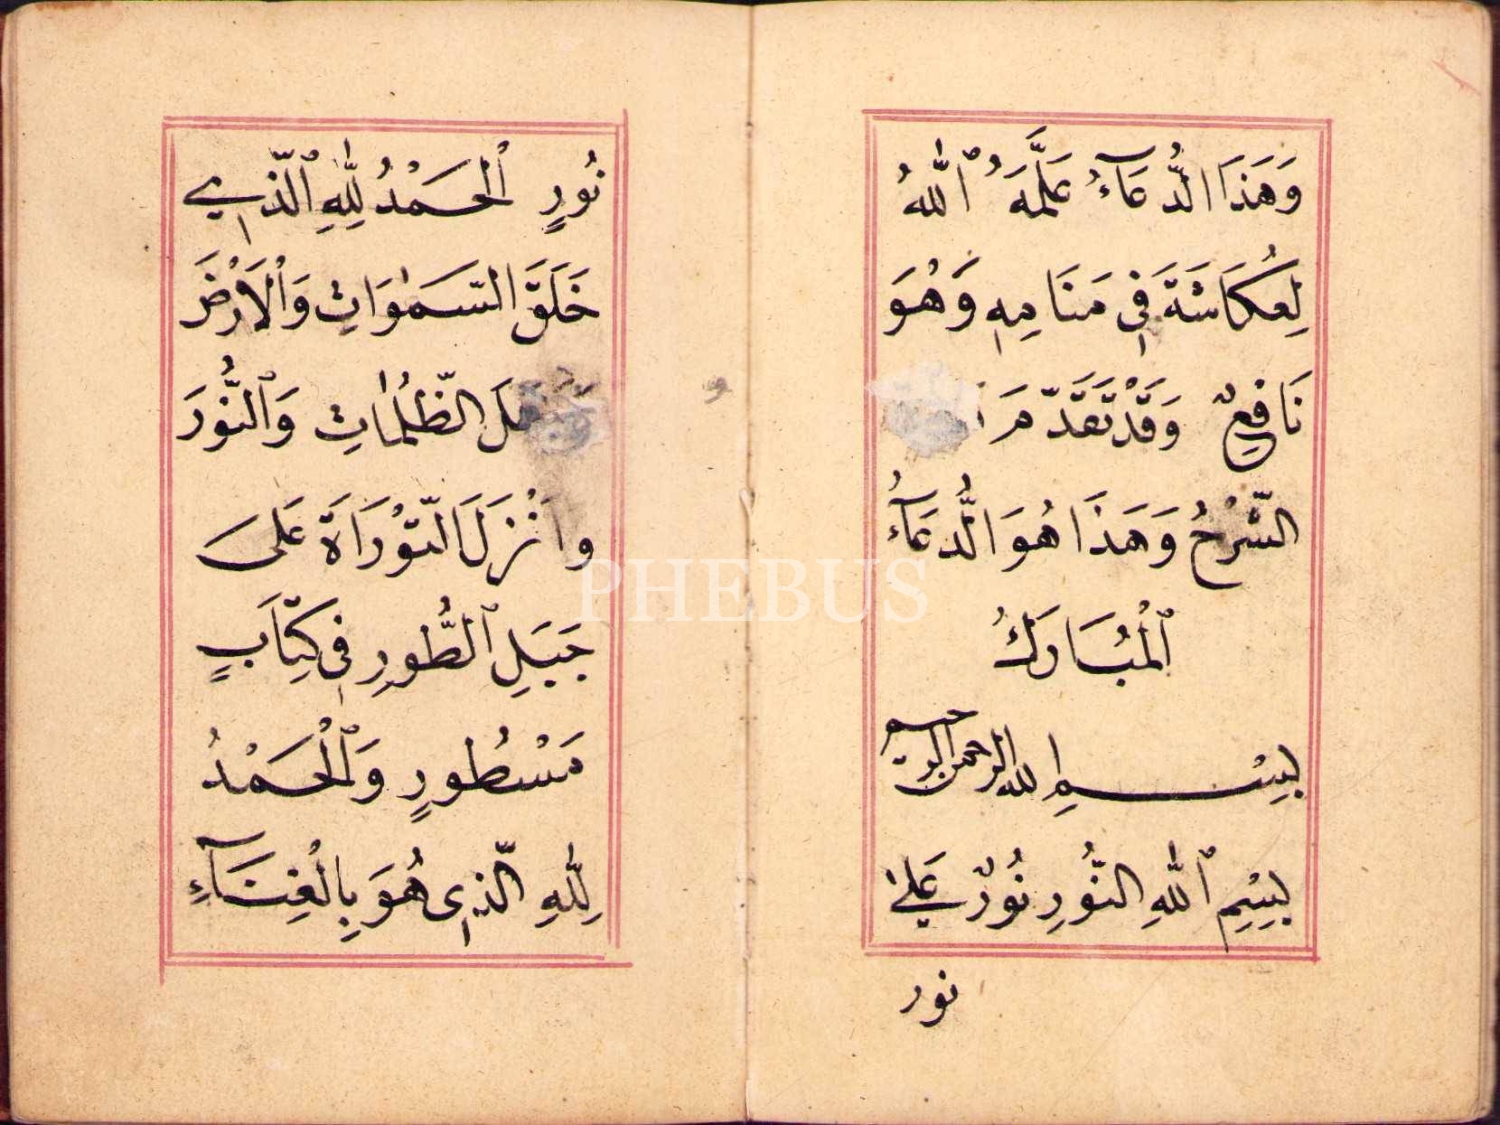 وَهَذَا الدُّعَآءُ عَلَّمَهُ ٱللّٰهُ
لِعُكَاشَةَ فِي مَنَامِهِ وَهُوَ
نَافِعٌ وَقَدْ تَقَدَّمَ
الشَّرْحُ وَهَذَا هُوَ الدُّعَآءُ
ٱلْمُبَارَكُ
بِسْمِ اللّٰه الرحمن الرحيم
بِسْمِ ٱللّٰهِ النُّورِ نُورٌ عَلىٰ
نور
نُورٍ ٱلْحَمْدُ لِلّٰهِ ٱلَّذِي
خَلَقَ السَّمٰوَاتِ وَٱلْاَرْضَ
وَجَعَلَ الظُّلُمَاتِ وَٱلنُّورَ
وَاَنْزَلَ التَّوْرَاةَ عَلىَ
جَبَلِ ٱلطُّورِ فِى كِتَابٍ
مَسْطُورٍ وَٱلْحَمْدُ
لِلّٰهِ الَّذِى هُوَ بِالْغِنَآءِ
PHEBUS